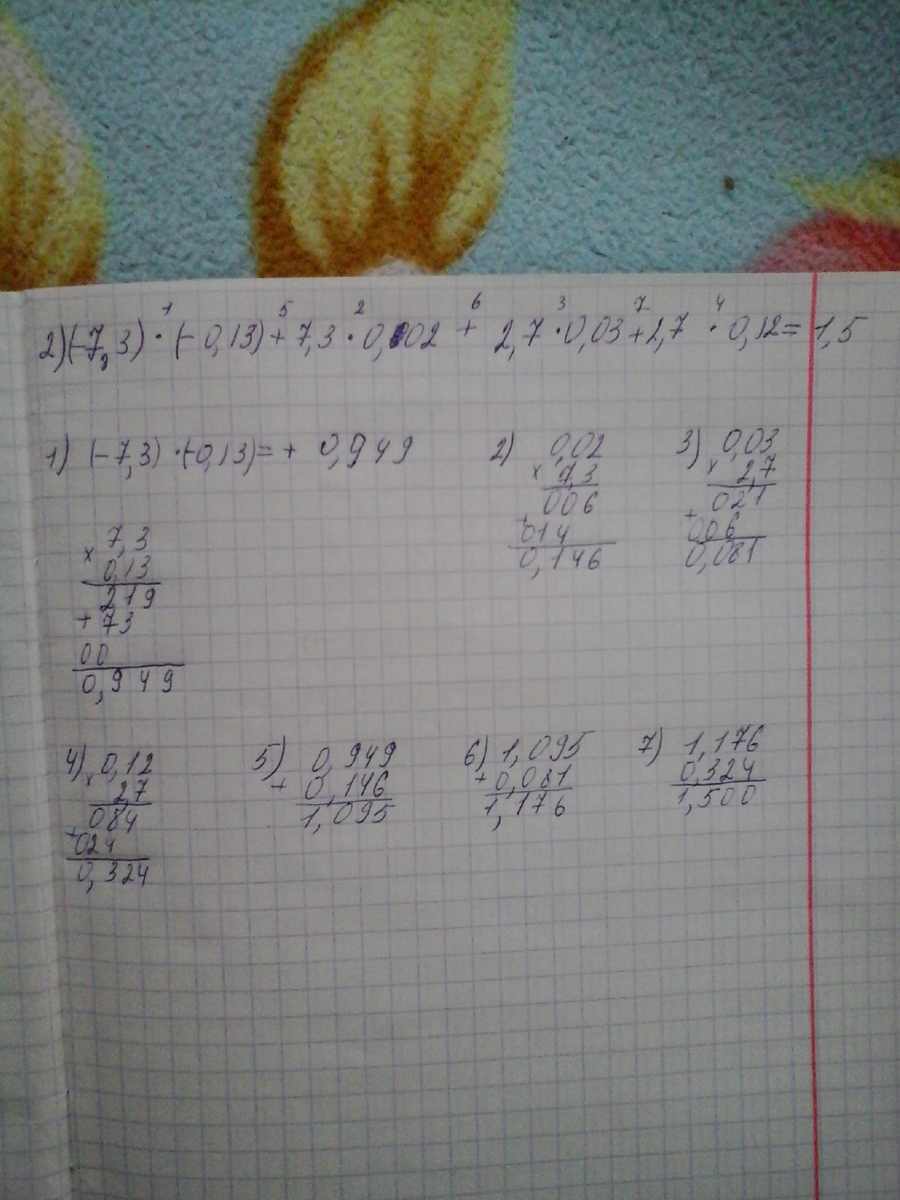 1 5 2 6 3 7 4
2)(-7,3) · (-0,13) + 7,3 · 0,002 + 2,7 · 0,03 + 2,7 · 0,12 = 1,5
1) (-7,3) · (-0,13) = + 0,949
7,3
× 0,13
219
+ 73
00
0,949
2) 0,02
× 7,3
006
+ 014
0,146
3) 0,03
× 2,7
021
+ 006
0,081
4) 0,12
× 2,7
084
+ 024
0,324
5) 0,949
+ 0,146
1,095
6) 1,095
+ 0,081
1,176
7) 1,176
0,324
1,500